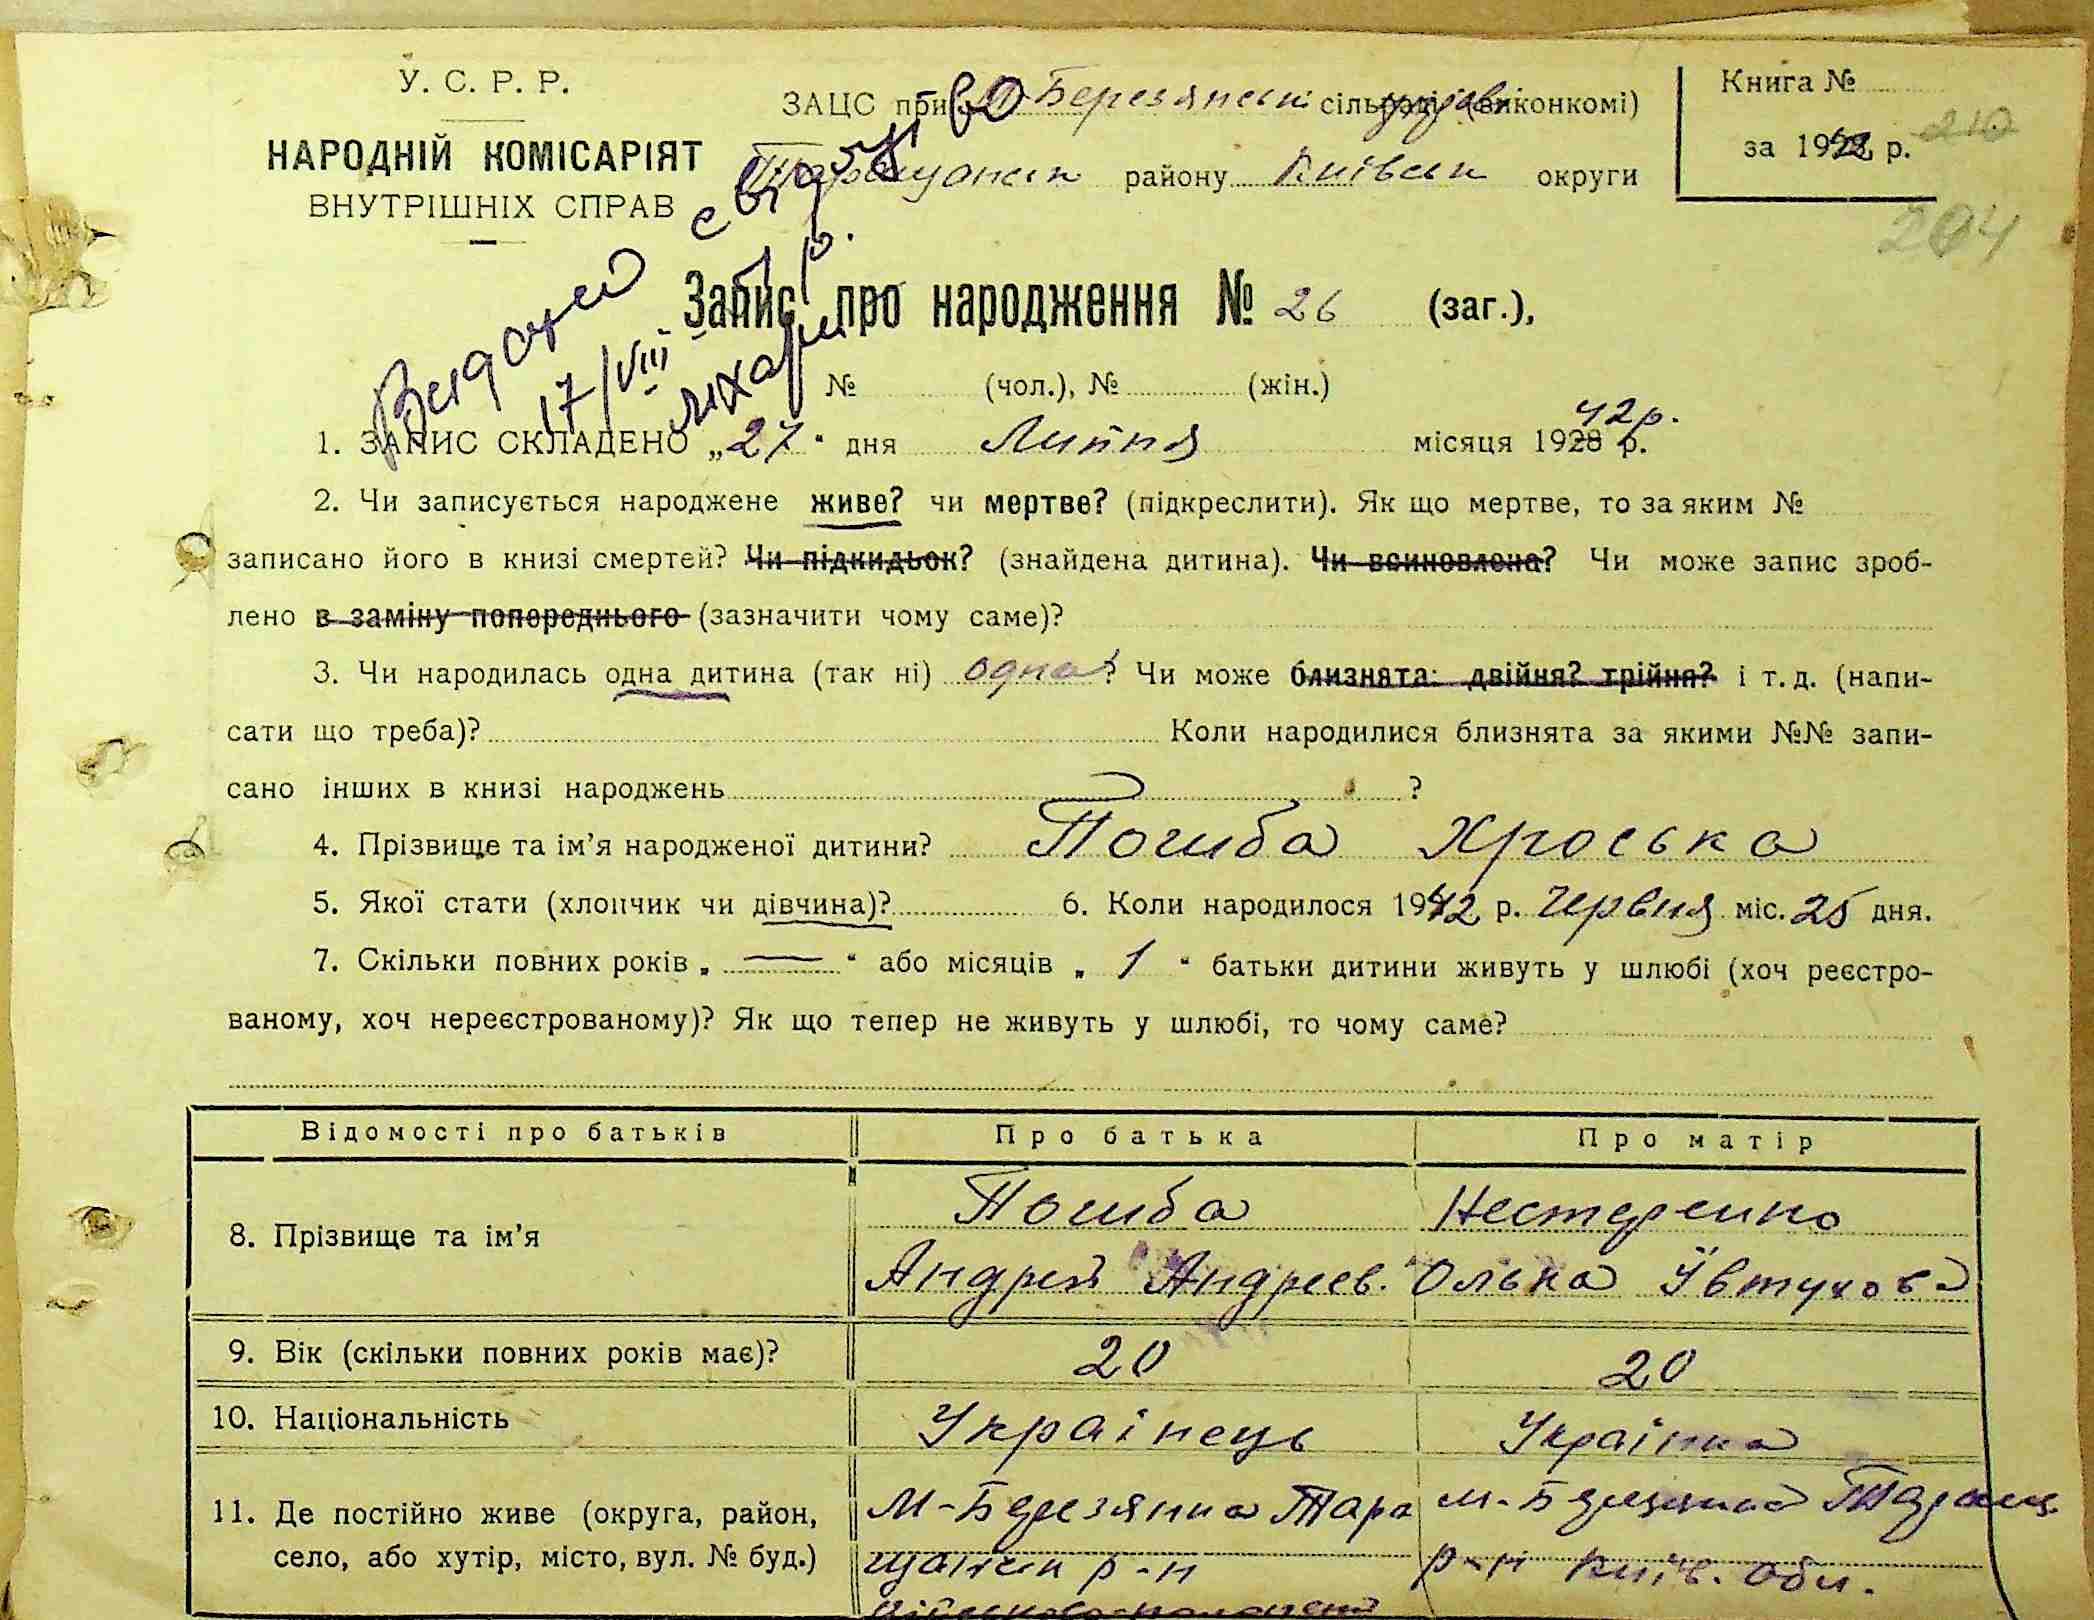 У. С. Р. Р.
НАРОДНІЙ КОМІСАРІЯТ
ВНУТРІШНІХ СПРАВ
ЗАЦС при М-Березянські сільраді (виконкомі)
Таращанськ району Київськ округи
Книга №
за 1942 р. 210
204
Видано свідоц
17/VIII
Запис про народження № 26 (заг.),
№ (чол.), № (жін.)
42р.
1. ЗАПИС СКЛАДЕНО „27“ дня Липня місяця 1928 р.
2. Чи записується народжене живе? чи мертве? (підкреслити). Як що мертве, то за яким №
записано його в книзі смертей? Чи підкидьок? (знайдена дитина). Чи всиновлена? Чи може запис зроб-
лено в заміну попереднього (зазначити чому саме)?
3. Чи народилась одна дитина (так ні) одна? Чи може близнята: двійня? трійня? і т. д. (напи-
сати що треба)? Коли народилися близнята за якими №№ запи-
сано інших в книзі народжень ?
4. Прізвище та ім’я народженої дитини? Погиба Хроська
5. Якої стати (хлопчик чи дівчина)? 6. Коли народилося 1942 р. Червня міс. 25 дня.
7. Скільки повних років „ — “ або місяців „ 1 “ батьки дитини живуть у шлюбі (хоч реєстро-
ваному, хоч нереєстрованому)? Як що тепер не живуть у шлюбі, то чому саме?
Відомості про батьків Про батька Про матір
8. Прізвище та ім’я Погиба Нестеренко
Андрей Андреев. Олька Ївтухова
9. Вік (скільки повних років має)? 20 20
10. Національність Українець Українка
11. Де постійно живе (округа, район, М-Березянка Тара м-Березянка Таращ.
село, або хутір, місто, вул. № буд.) щанськ р-н р-н Київ. обл.